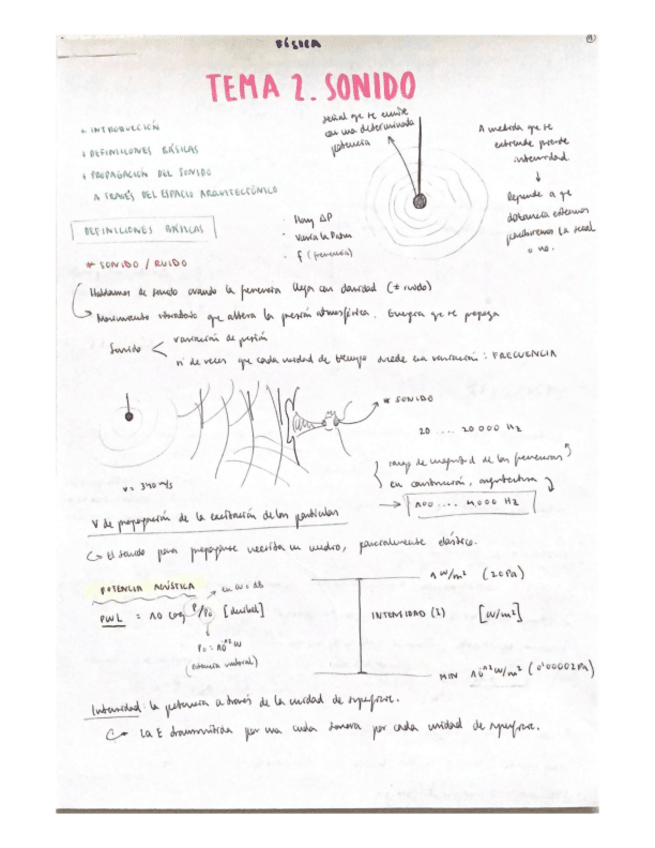 FÍSICA
TEMA 2. SONIDO
INTRODUCCIÓN
DEFINICIONES BÁSICAS
PROPAGACIÓN DEL SONIDO
A TRAVÉS DEL ESPACIO ARQUITECTÓNICO
señal que se emite
con una determinada
potencia
A medida que se
extiende pierde
intensidad
↓
Depende a que
distancia estemos
percibiremos la señal
o no.
DEFINICIONES BÁSICAS
· Hay ΔP
· Varía la
· f (frecuencia)
* SONIDO / RUIDO
Hablamos de sonido cuando la frecuencia llega con claridad (≠ ruido)
Movimiento vibratorio que altera la presión atmosférica. Energía que se propaga
Sonido < variación de presión
nº de veces que cada unidad de tiempo sucede esa variación: FRECUENCIA
* SONIDO
20 ... 20 000 Hz
rango de magnitud de las frecuencias
en construcción, arquitectura
100 .... 4.000 Hz
v = 340 m/s
V de propagación de la excitación de las partículas
El sonido para propagarse necesita un medio, generalmente elástico.
POTENCIA ACÚSTICA
en w = dB
PWL = 10 log P/P₀ [decibel]
P₀ = 10⁻¹² W
(potencia umbral)
1 W/m² (20 Pa)
INTENSIDAD (I) [W/m²]
MIN 10⁻¹² W/m² (0'00002 Pa)
Intensidad: la potencia a través de la unidad de superficie.
La E transmitida por una onda sonora por cada unidad de superficie.